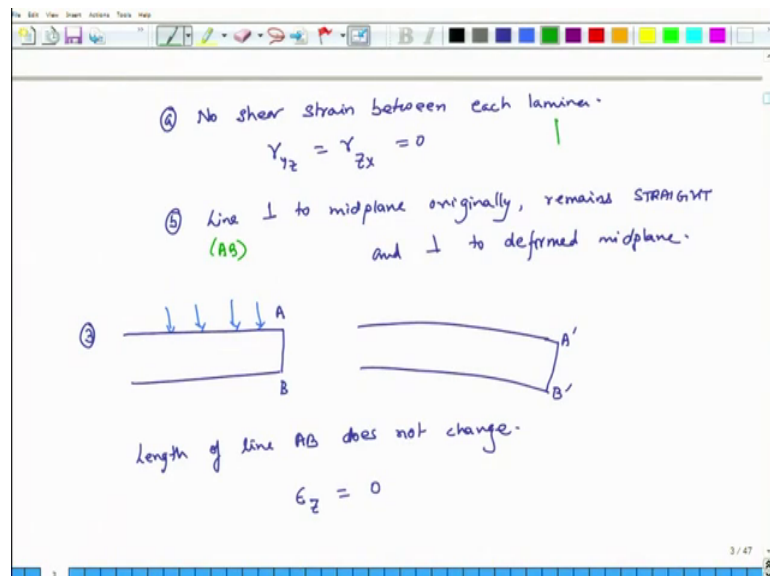 File Edit View Insert Actions Tools Help
B I
ⓐ No shear strain between each lamina.
γyz = γzx = 0
ⓑ Line ⊥ to midplane originally, remains STRAIGHT
(AB) and ⊥ to deformed midplane.
③ A A'
B B'
Length of line AB does not change.
ϵz = 0
3 / 47